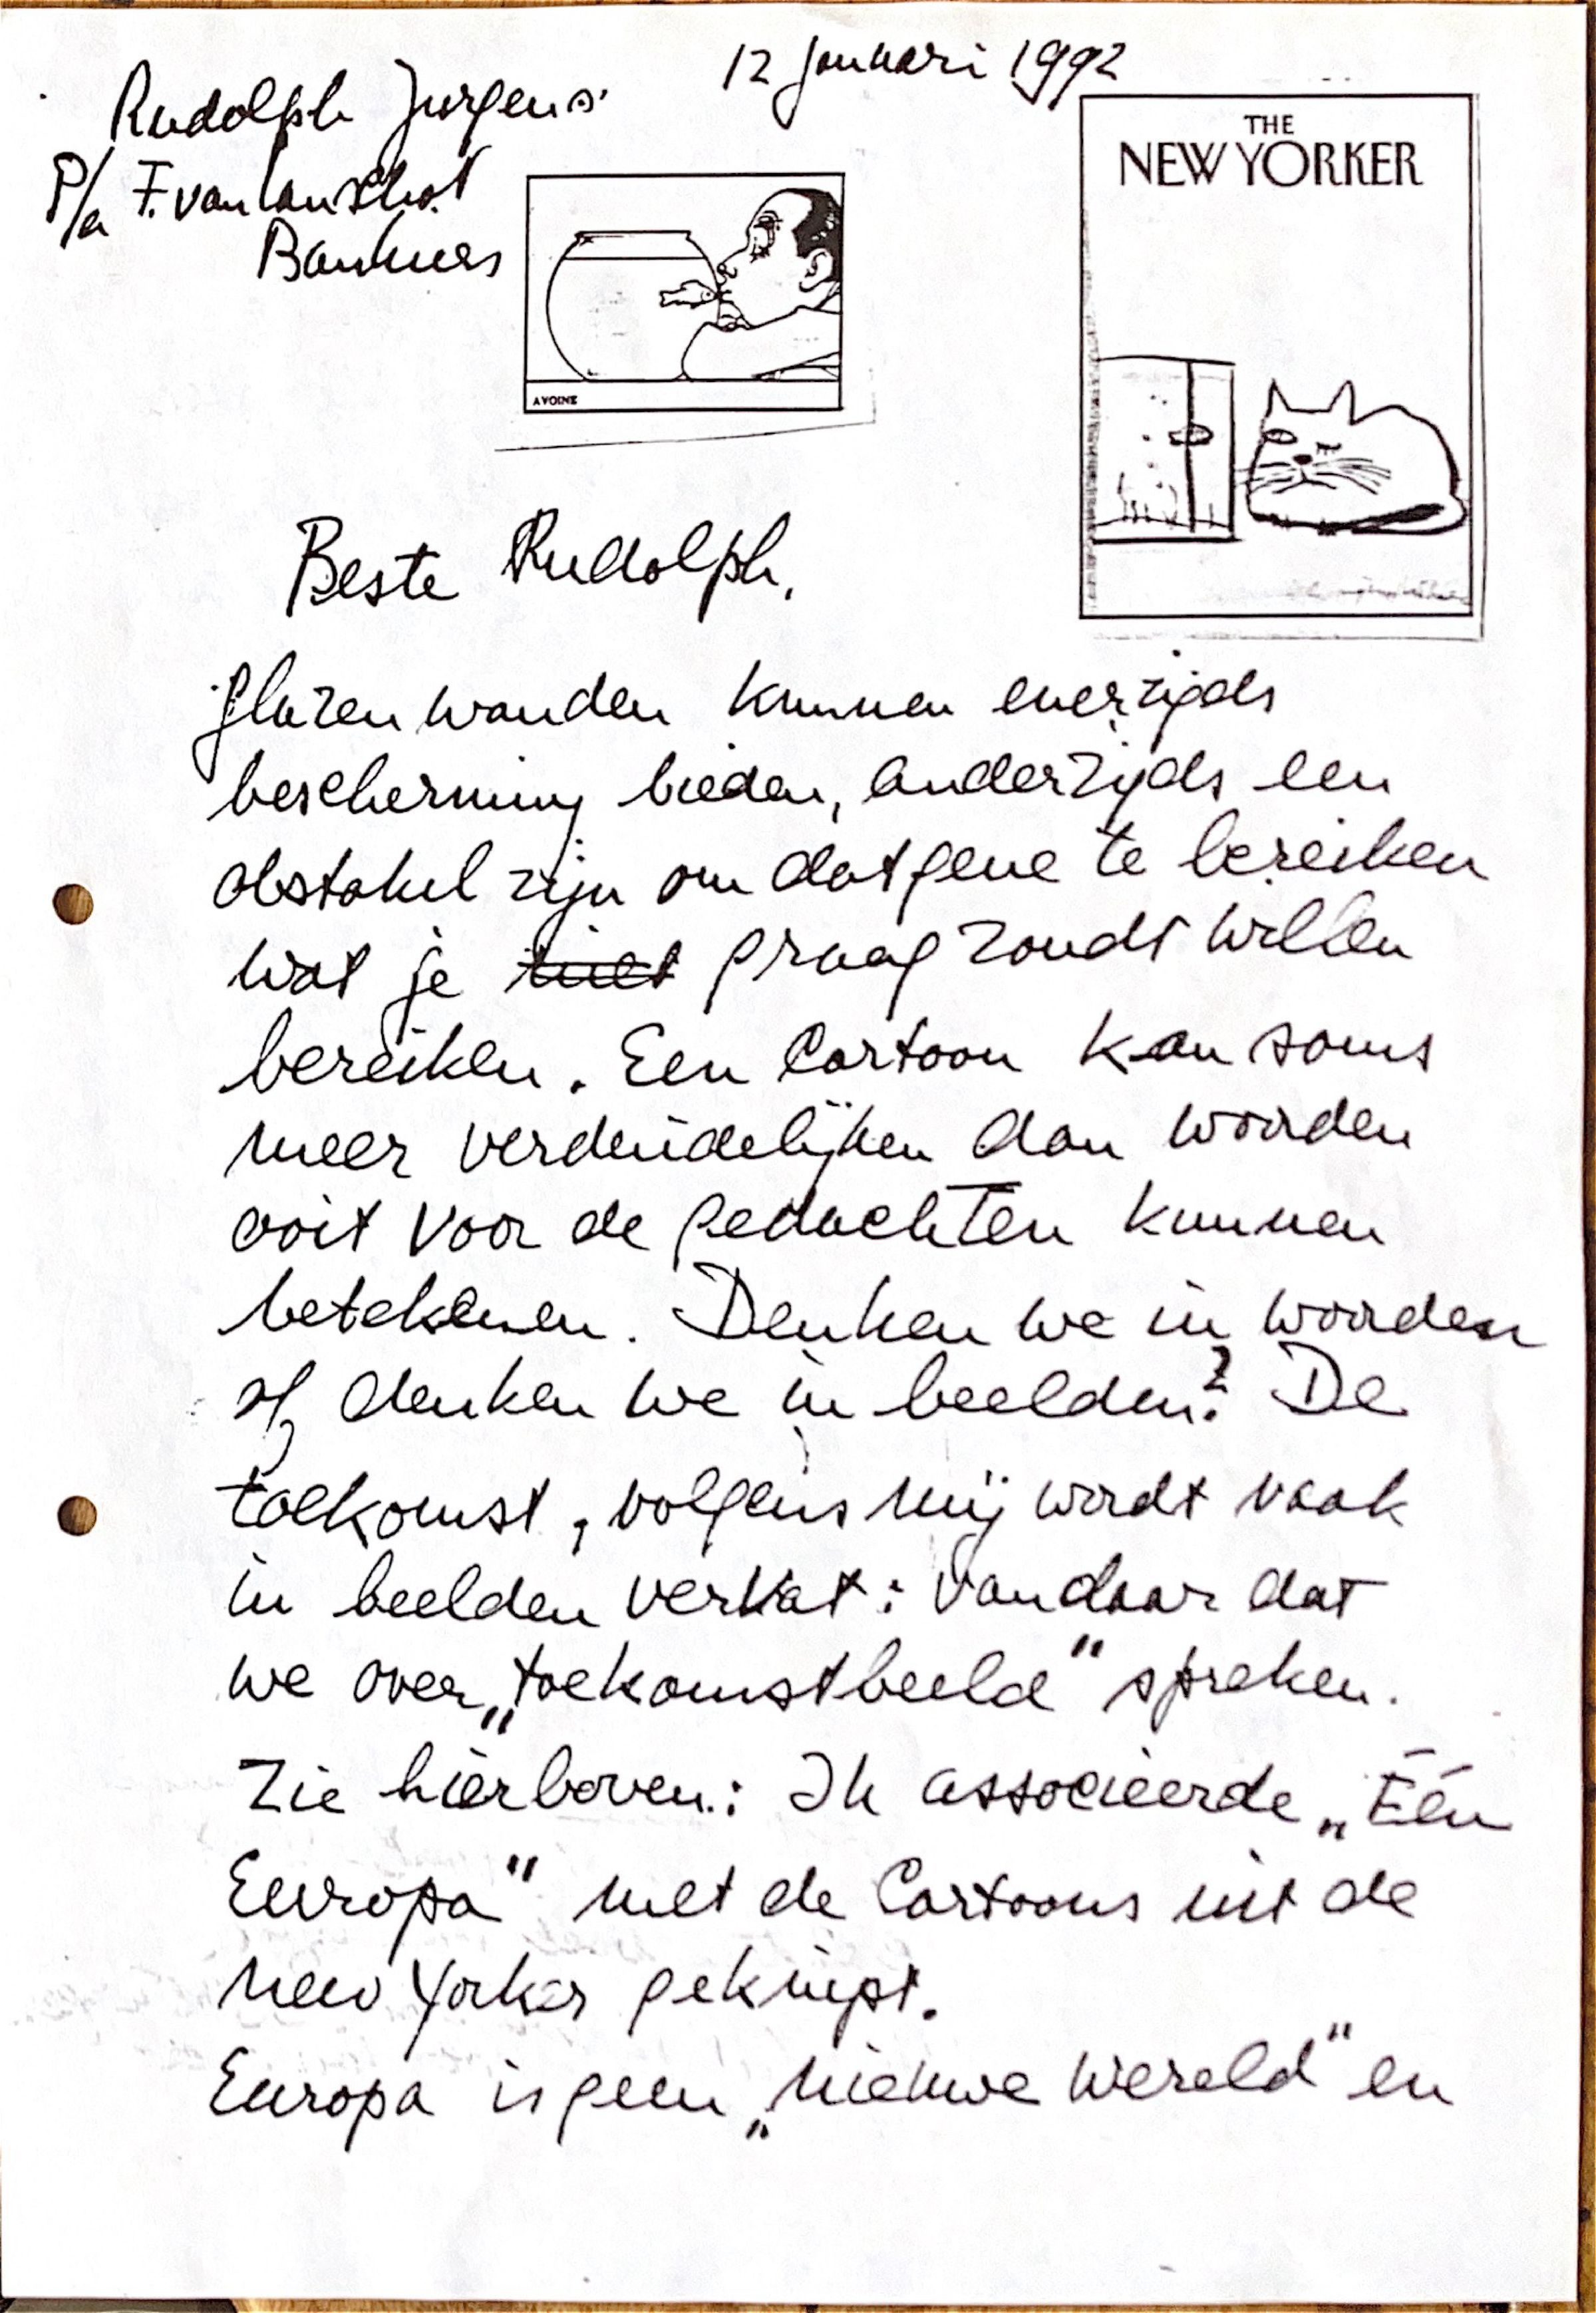 12 januari 1992
Rudolph Jurgens
P/a F. van Lanschot
Bankiers
THE
NEW YORKER
AVOINE
Beste Rudolph,
Glazen wanden kunnen enerzijds
bescherming bieden, anderzijds een
obstakel zijn om datgene te bereiken
wat je niet graag zoudt willen
bereiken. Een Cartoon kan soms
meer verduidelijken dan woorden
ooit voor de gedachten kunnen
betekenen. Denken we in woorden
of denken we in beelden? De
toekomst, volgens mij wordt vaak
in beelden vervat: vandaar dat
we over „toekomstbeeld" spreken.
Zie hierboven: Ik associeerde „Eén
Europa" met de Cartoons uit de
New Yorker geknipt.
Europa is geen „nieuwe wereld" en